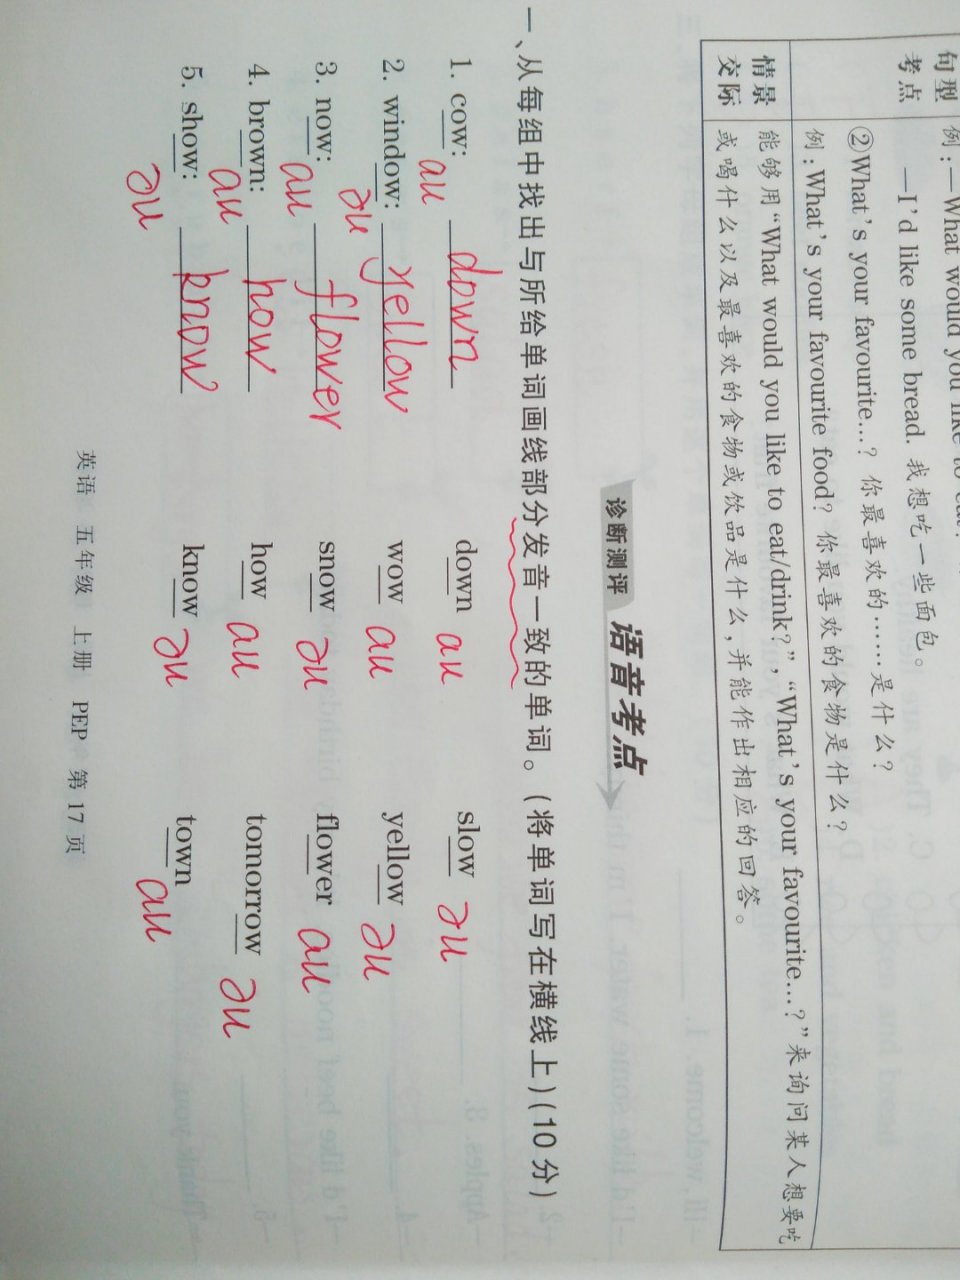 句型
考点
例:—What would you like to eat?
—I'd like some bread. 我想吃一些面包。
②What's your favourite…? 你最喜欢的……是什么?
例:What's your favourite food? 你最喜欢的食物是什么?
情景
交际
能够用“What would you like to eat/drink?”,“What's your favourite…?”来询问某人想要吃
或喝什么以及最喜欢的食物或饮品是什么,并能作出相应的回答。
诊断测评 语音考点
一、从每组中找出与所给单词画线部分发音一致的单词。(将单词写在横线上)(10分)
1. cow: down down slow
au au əu
2. window: yellow wow yellow
əu au əu
3. now: flower snow flower
au əu au
4. brown: how how tomorrow
au au əu
5. show: know know town
əu əu au
英语 五年级 上册 PEP 第17页